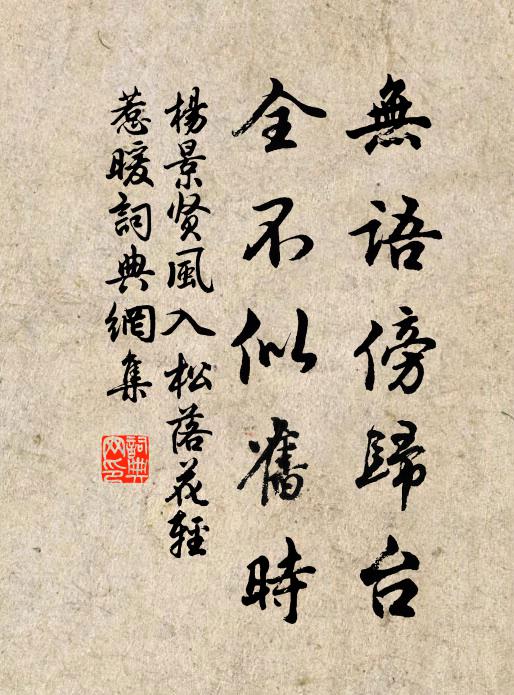 無語傍歸台
全不似舊時
楊景贤風入松落花輕
惹暖詞典網集
詞典网印